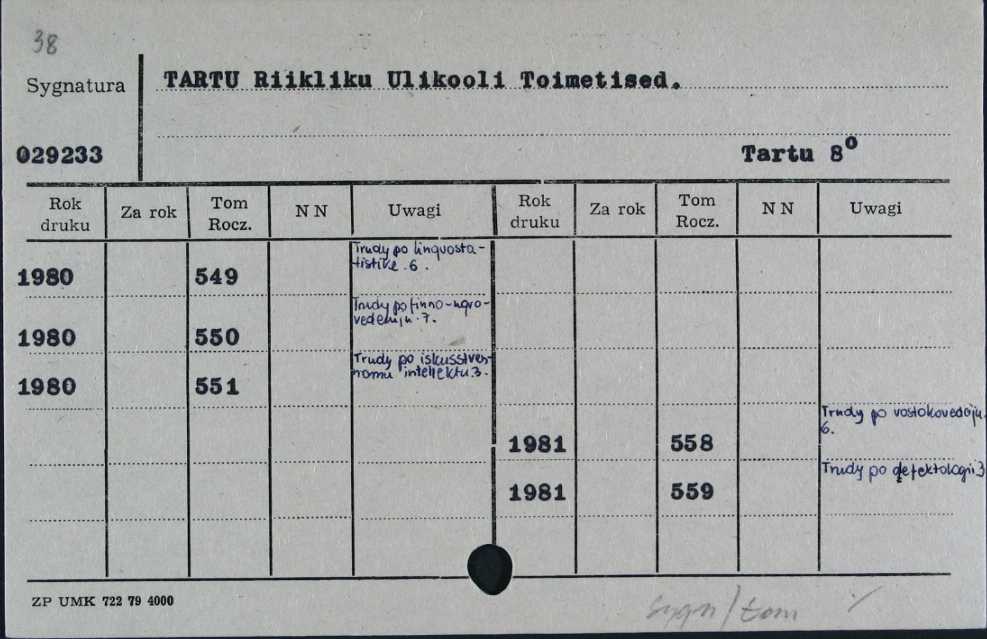 38
Sygnatura
TARTU Riikliku Ulikooli Toimetised.
029233
Tartu 8⁰
Rok druku Za rok Tom Rocz. N N Uwagi Rok druku Za rok Tom Rocz. N N Uwagi
Trudy po lingvosta-
tistike . 6 .
1980 549
Trudy po finno-ugro-
vedeniju . 7.
1980 550
Trudy po iskusstven-
nomu intellektu 3.
1980 551
Trudy po vostokovedeiju.
6.
1981 558
Trudy po defektologii 3
1981 559
ZP UMK 722 79 4000
Sygn / tom